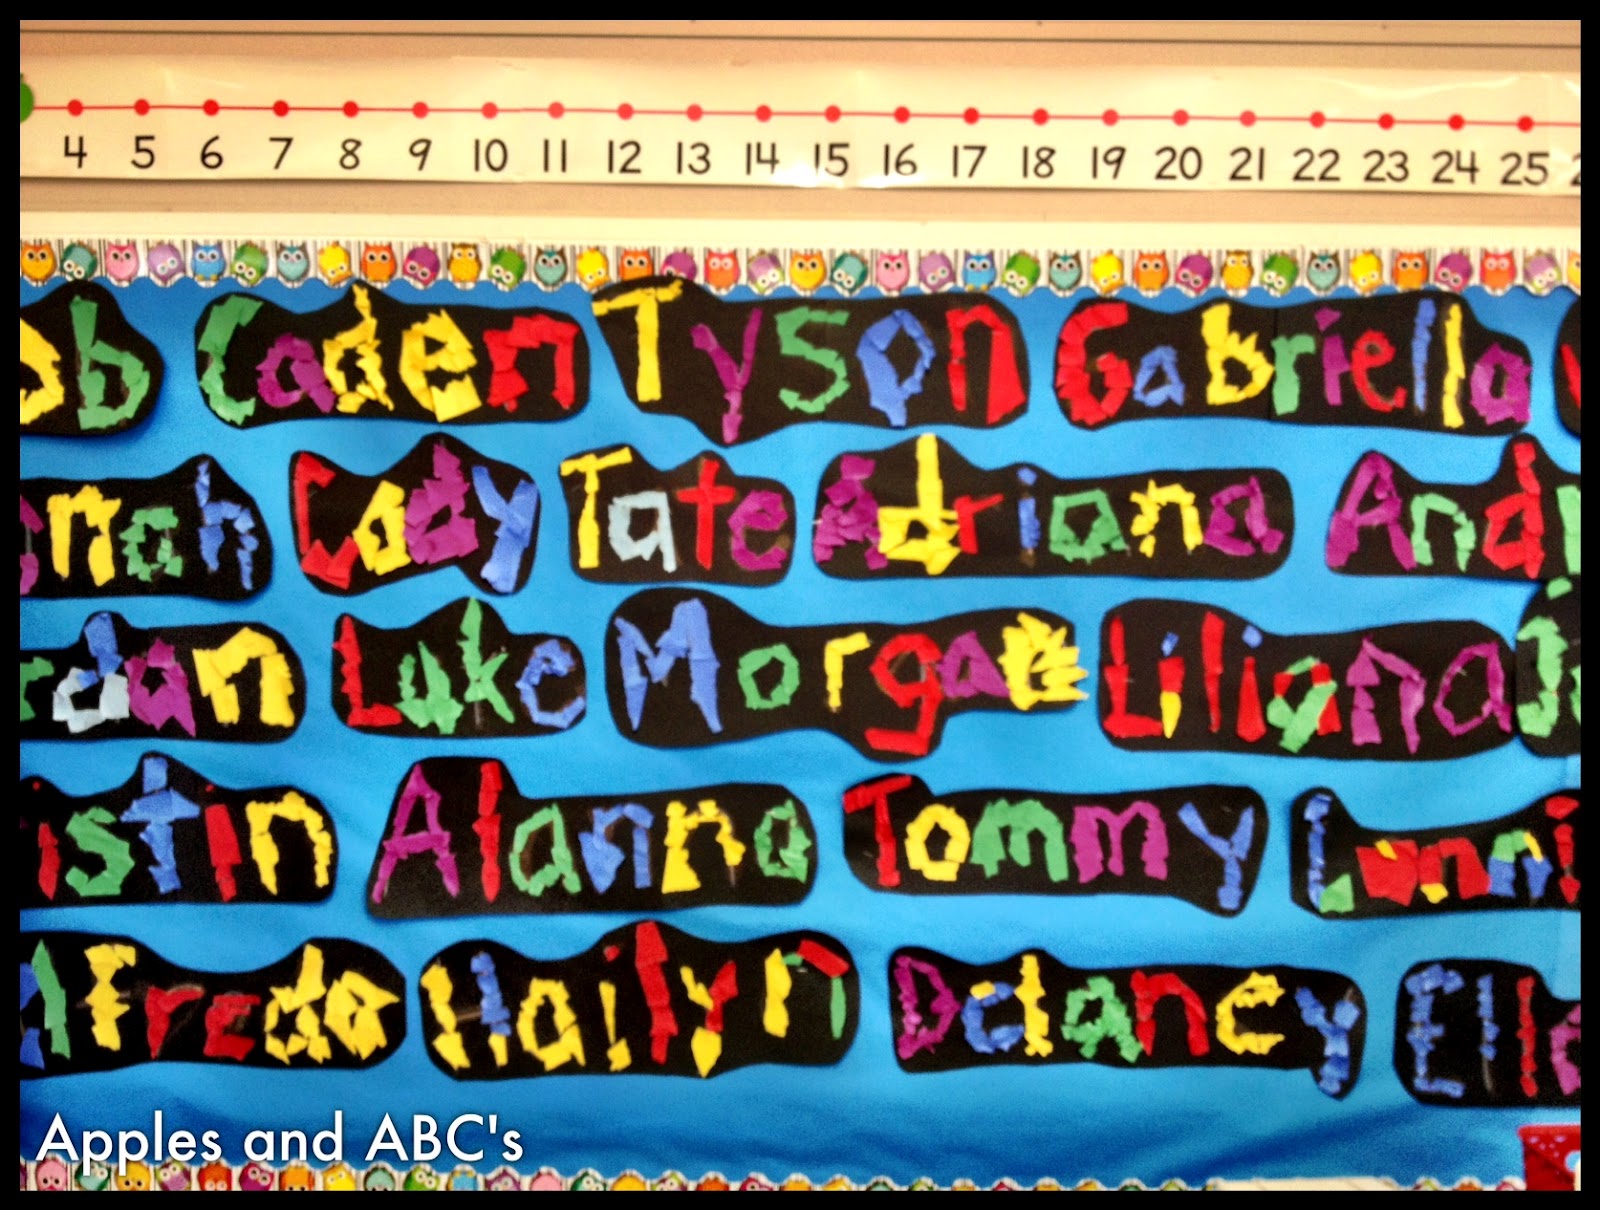 4 5 6 7 8 9 10 11 12 13 14 15 16 17 18 19 20 21 22 23 24 25
Caden Tyson Gabriella
Cody Tate Adriana
Luke Morgan Liliana
Alanna Tommy
Alfredo Hailyn Delaney
Apples and ABC's